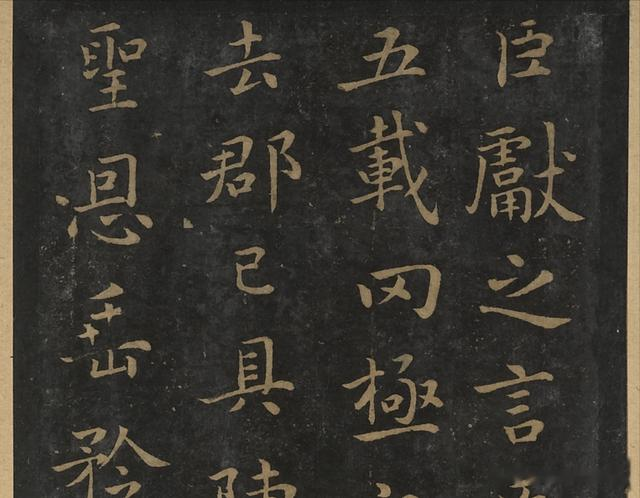 臣獻之言
五載罔極
去郡已具陳
聖恩垂矜